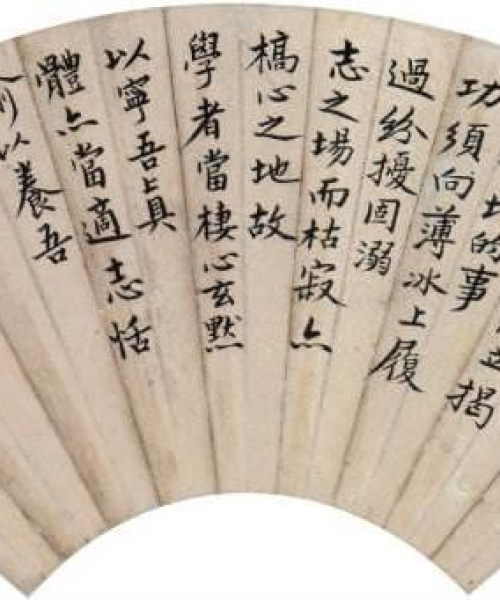 揭
的事
功須向薄冰上履
過紛擾固溺
志之場而枯寂亦
槁心之地故
學者當棲心玄默
以寧吾真
體亦當適志恬
以養吾